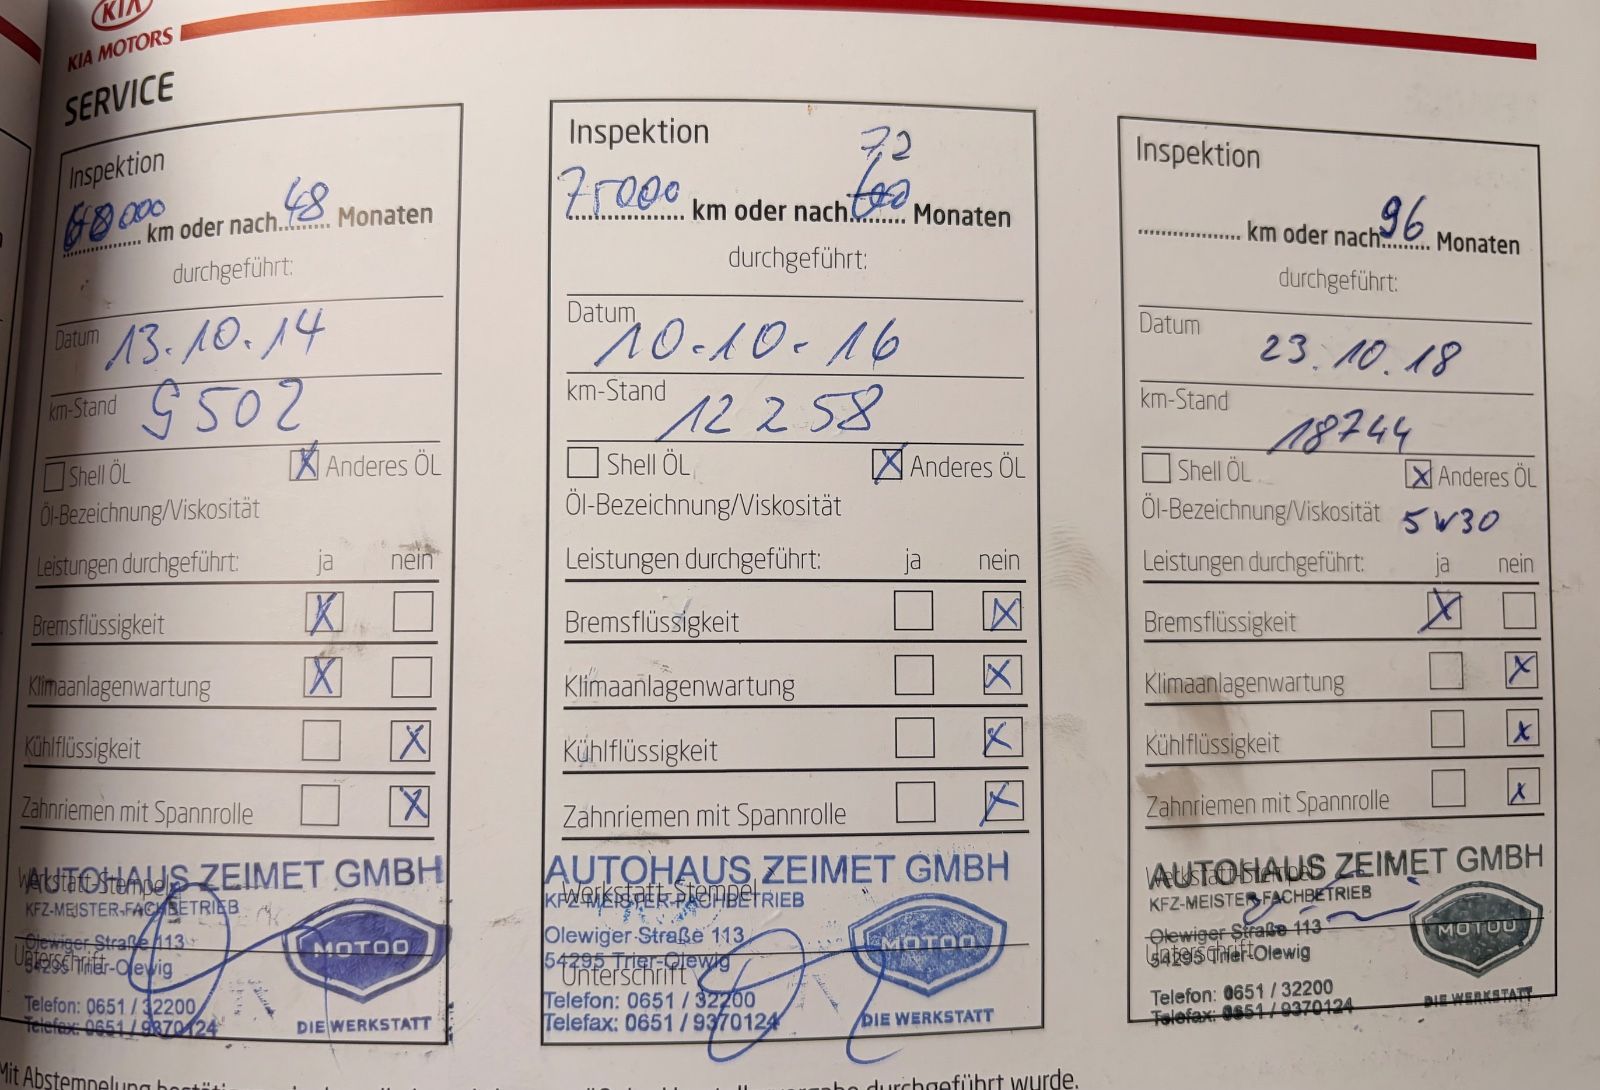 KIA
KIA MOTORS
SERVICE
Inspektion
000 km oder nach 48 Monaten
durchgeführt:
Datum 13.10.14
km-Stand 9502
Shell ÖL X Anderes ÖL
Öl-Bezeichnung/Viskosität
Leistungen durchgeführt: ja nein
Bremsflüssigkeit X
Klimaanlagenwartung X
Kühlflüssigkeit X
Zahnriemen mit Spannrolle X
AUTOHAUS ZEIMET GMBH
Werkstatt-Stempel
KFZ-MEISTER-FACHBETRIEB
Olewiger Straße 113
Unterschrift
54295 Trier-Olewig
MOTOO
Telefon: 0651 / 32200
Telefax: 0651 / 9370124
DIE WERKSTATT
Inspektion
72
75000 km oder nach 60 Monaten
durchgeführt:
Datum 10.10.16
km-Stand 12258
Shell ÖL X Anderes ÖL
Öl-Bezeichnung/Viskosität
Leistungen durchgeführt: ja nein
Bremsflüssigkeit X
Klimaanlagenwartung X
Kühlflüssigkeit X
Zahnriemen mit Spannrolle X
AUTOHAUS ZEIMET GMBH
Werkstatt-Stempel
KFZ-MEISTER-FACHBETRIEB
Olewiger Straße 113
54295 Trier-Olewig
Unterschrift
MOTOO
Telefon: 0651 / 32200
Telefax: 0651 / 9370124
DIE WERKSTATT
Inspektion
km oder nach 96 Monaten
durchgeführt:
Datum 23.10.18
km-Stand 18744
Shell ÖL X Anderes ÖL
Öl-Bezeichnung/Viskosität 5W30
Leistungen durchgeführt: ja nein
Bremsflüssigkeit X
Klimaanlagenwartung X
Kühlflüssigkeit X
Zahnriemen mit Spannrolle X
AUTOHAUS ZEIMET GMBH
Werkstatt-Stempel
KFZ-MEISTER-FACHBETRIEB
Olewiger Straße 113
Unterschrift
54295 Trier-Olewig
MOTOO
Telefon: 0651 / 32200
Telefax: 0651 / 9370124
DIE WERKSTATT
Mit Abstempelung durchgeführt wurde.